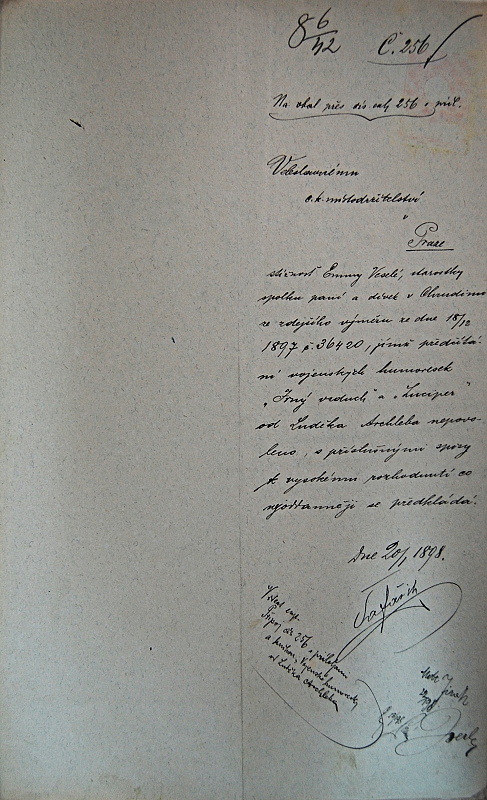 8 6/42 Č. 256
Na obal přes čís. 256 s příl.
Veleslavnému
c.k. místodržitelství
v
Praze
stížnost Emmy Veselé, starostky
spolku paní a dívek v Chrudimi
ze zdejšího výměru ze dne 18/12
1897 č. 36420, jímž předčítá-
ní vojenských humoresek
„Jiný vzduch“ a „Luciper“
od Luďka Archleba nepovo-
leno, s příslušnými spisy
k vysokému rozhodnutí co
nejoddanněji se předkládá.
Dne 20/1 1898.
Připoj čís 256 s přílohami
a knihou, Vojenské humoresky
od Luďka Archleba